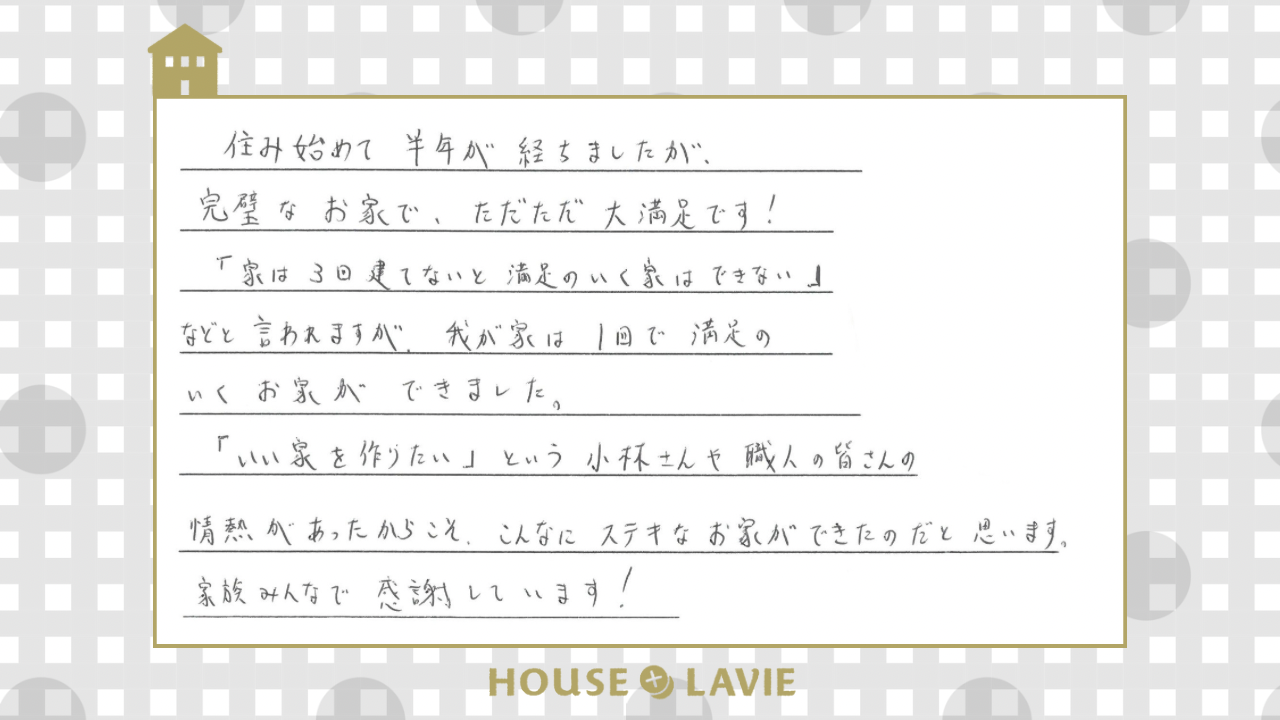 住み始めて 半年が 経ちましたが、
完璧な お家で、ただただ 大満足です!
「家は 3回 建てないと 満足のいく家は できない」
などと 言われますが、我が家は 1回で 満足の
いく お家が できました。
「いい家を作りたい」という 小林さんや 職人の皆さんの
情熱が あったからこそ、こんなに ステキな お家ができたのだと 思います。
家族みんなで 感謝しています!
HOUSE LAVIE